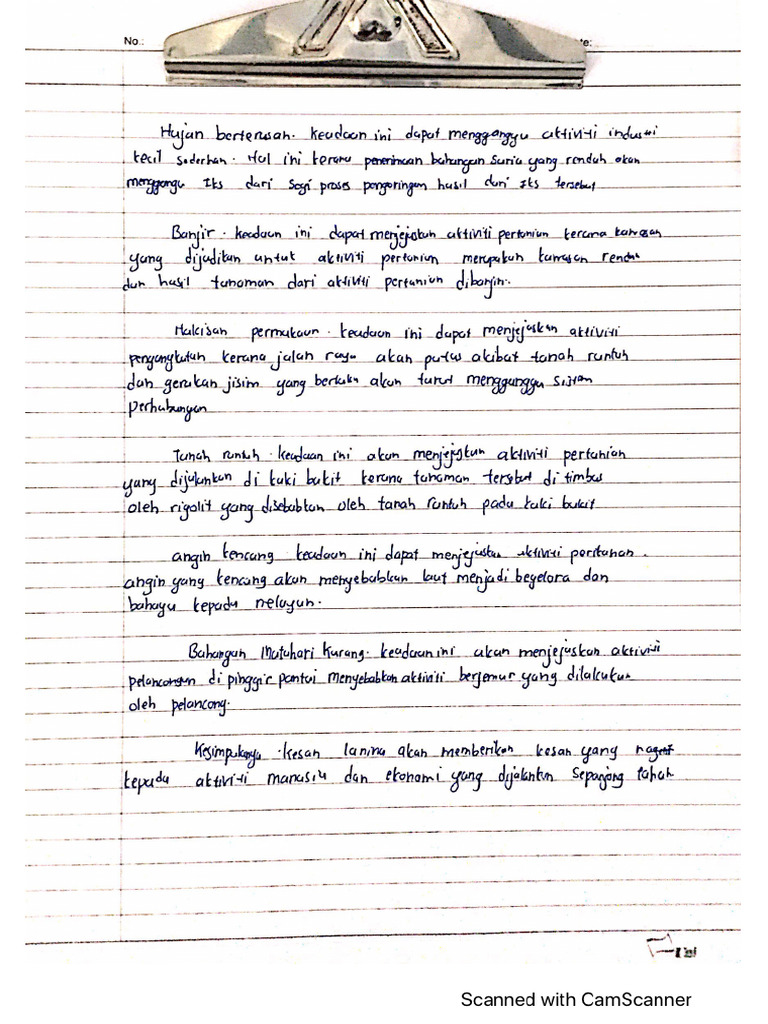 No.:
te:
Hujan berterusan. keadaan ini dapat menggangyu aktiviti industri
kecil sederhan. Hal ini kerana penerimaan bahangan suria yang rendah akan
menggangu Iks dari segi proses pengeringan hasil dari Iks tersebut
Banjir. keadaan ini dapat menjejaskan aktiviti pertanian kerana kawasan
yang dijadikan untuk aktiviti pertanian merupakan kawasan rendah
dan hasil tanaman dari aktiviti pertanian dibanjiri.
Hakisan permukaan. keadaan ini dapat menjejaskan aktiviti
pengangkutan kerana jalan raya akan putus akibat tanah runtuh
dan gerakan jisim yang berlaku akan turut menggunggu sistem
perhubungan
Tanah runtuh. keadaan ini akan menjejaskan aktiviti pertanian
yang dijalankan di kaki bukit kerana tanaman tersebut di timbus
oleh rigolit yang disebabkan oleh tanah runtuh pada kaki bukit
angin kencang keadaan ini dapat menjejaskan aktiviti perikanan.
angin yang kencang akan menyebabkan laut menjadi begelora dan
bahaya kepada nelayan.
Bahangan Matahari Kurang. keadaan ini akan menjejaskan aktiviti
pelancongan di pinggir pantai menyebabkan aktiviti berjemur yang dilakukan
oleh pelancong.
Kesimpulanya. kesan lanina akan memberikan kesan yang
kepada aktiviti manusia dan ekonomi yang dijalankan sepanjang tahun
Scanned with CamScanner